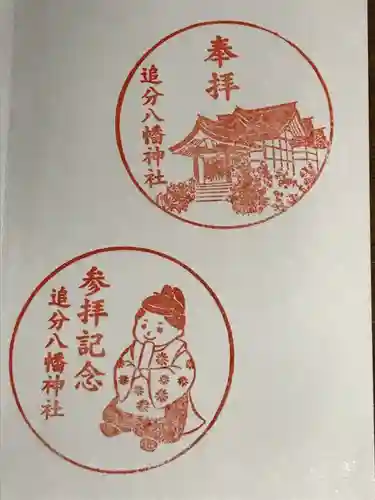 奉拝
追分八幡神社
参拝記念
追分八幡神社